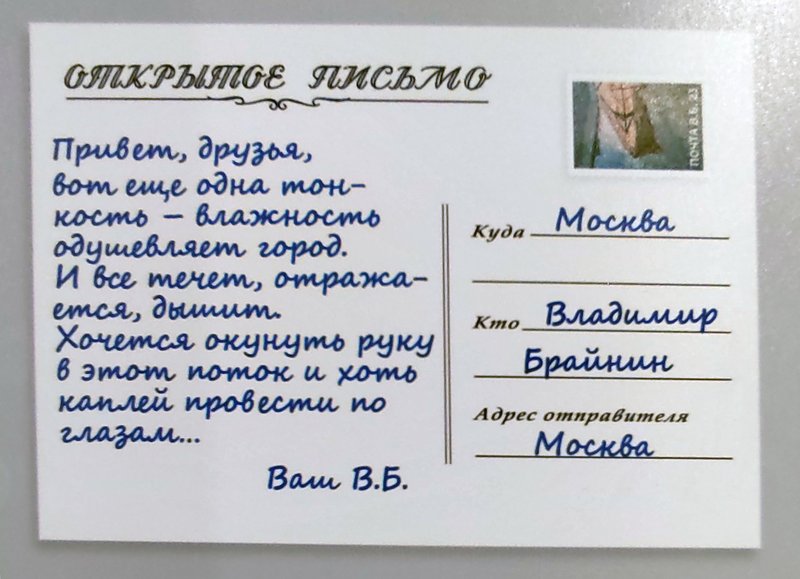 ОТКРЫТОЕ ПИСЬМО
ПОЧТА В.Б. 23
Привет, друзья,
вот еще одна тон-
кость – влажность
одушевляет город.
И все течет, отража-
ется, дышит.
Хочется окунуть руку
в этот поток и хоть
каплей провести по
глазам...
Ваш В.Б.
Куда Москва
Кто Владимир
Брайнин
Адрес отправителя
Москва